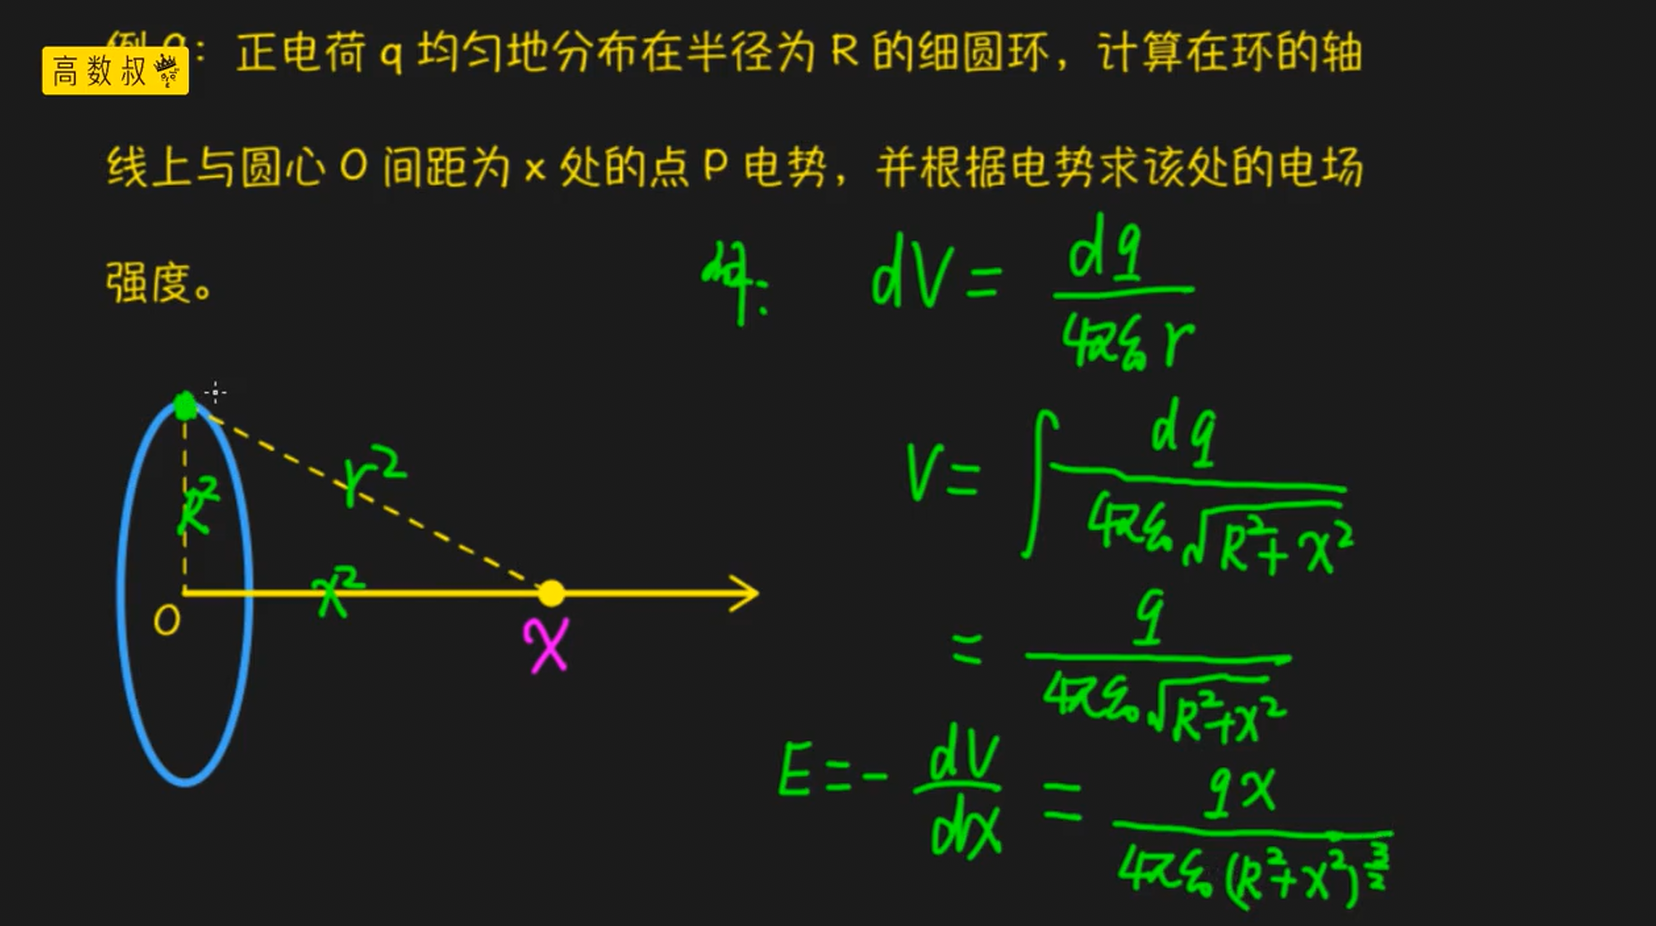 高数叔
：正电荷 q 均匀地分布在半径为 R 的细圆环，计算在环的轴
线上与圆心 O 间距为 x 处的点 P 电势，并根据电势求该处的电场
强度。
dq: dV = dq / 4πε₀ r
V = ∫ dq / 4πε₀ √R²+x²
= q / 4πε₀ √R²+x²
E = - dV/dx = qx / 4πε₀ (R²+x²)^3/2
r²
R²
x²
O
x